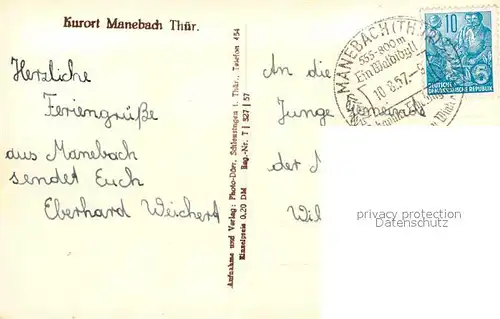 Kurort Manebach Thür.
Herzliche
Feriengrüße
aus Manebach
sendet Euch
Eberhard Weichert
Aufnahme und Verlag: Photo-Dörr, Schleusingen i. Thür., Telefon 454
Einzelpreis 0,20 DM Reg.-Nr. T | 527 | 57
MANEBACH (THÜR)
555-800m
Ein Waldidyll
10.8.57
10
DEUTSCHE
DEMOKRATISCHE REPUBLIK
An die
Junge Gemeinde
der
privacy protection
Datenschutz